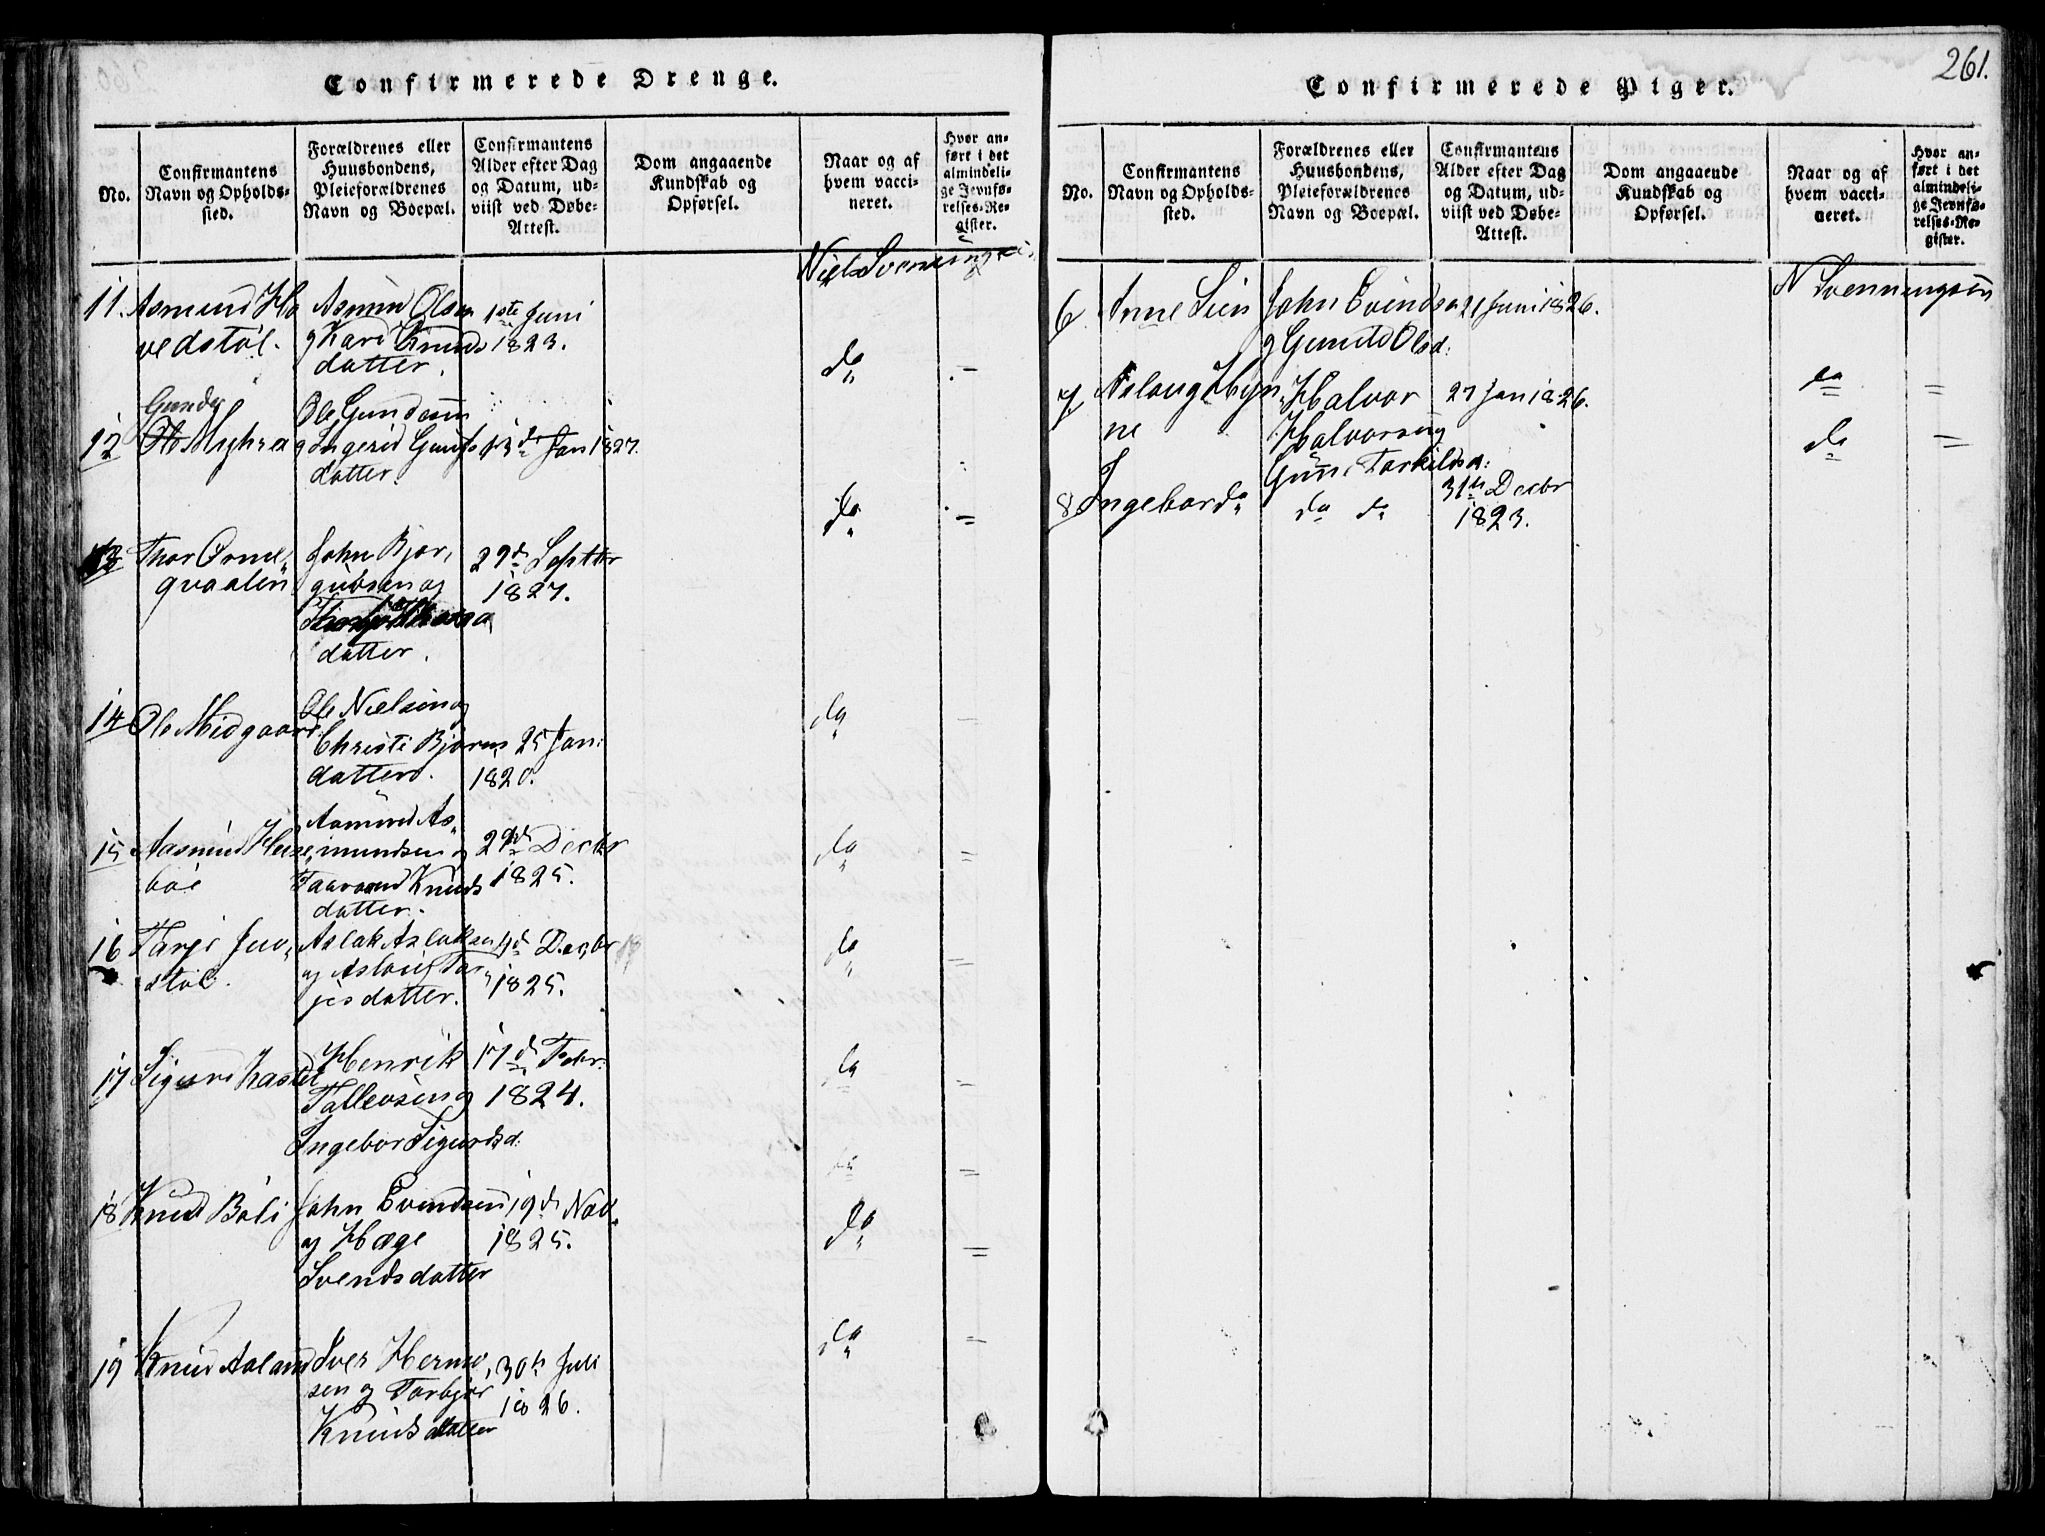 Confirmerede Drenge.
No.
Confirmantens
Navn og Opholds-
sted.
Forældrenes eller
Huusbondens,
Pleieforældrenes
Navn og Boepæl.
Confirmantens
Alder efter Dag
og Datum, ud-
viist ved Døbe-
Attest.
Dom angaaende
Kundskab og
Opførsel.
Naar og af
hvem vacci-
neret.
Hvor an-
ført i det
almindeli-
ge Jevnfø-
relses-Re-
gister.
11. Asmund Ho
vedstøl.
Asmund Olsen
og Kari Knuds
datter.
1ste Juni
1823.
Niels Svenningsen
da
Gunder
12 Myhra
Ole Gundersen
og Ingerid Gunds
datter.
13d Jan 1827.
da
13 Thor Orme
qvaalen
John Bjor,
gufsen og
datter.
29d Septbr
1827.
14 Ole Midgaard
Ole Nielsen og
Christi Bjorns
datter.
25 Jan:
1820.
da
15 Aasmund
bøe
Aasmund As,
mundsen og
Knuds
datter.
Decbr
1825.
da
16 Tarje Juv,
støl.
Aslak Aslaksen
og Aslaug Tar
jesdatter.
4d Decbr
1825.
da
17 Sigurd
Henrik
Tallevsen og
Ingebor Sigurdsd:
17d Febr:
1824.
da
18 Knud Bøli
John Evindsen
og Hæge
Svendsdatter
19d Nov.
1825.
da
19 Knud Aaland
Iver Hermo,
sen og Torbjør
Knudsdatter
30te Juli
1826.
da
261.
Confirmerede Piger.
No.
Confirmantens
Navn og Opholds-
sted.
Forældrenes eller
Huusbondens,
Pleieforældrenes
Navn og Boepæl.
Confirmantens
Alder efter Dag
og Datum, ud-
viist ved Døbe-
Attest.
Dom angaaende
Kundskab og
Opførsel.
Naar og af
hvem vacci-
neret.
Hvor an-
ført i det
almindeli-
ge Jevnfø-
relses-Re-
gister.
6 Anne Lien
John Evindsen
og Gunild Olsd:
21 Juni 1826.
N Svenningsen
7. Aslaug
ne
Halvor
Halvorsen og
Torkildsd:
27 Jan 1826.
da
8 Ingebor do
do do
31te Decbr
1823.
da